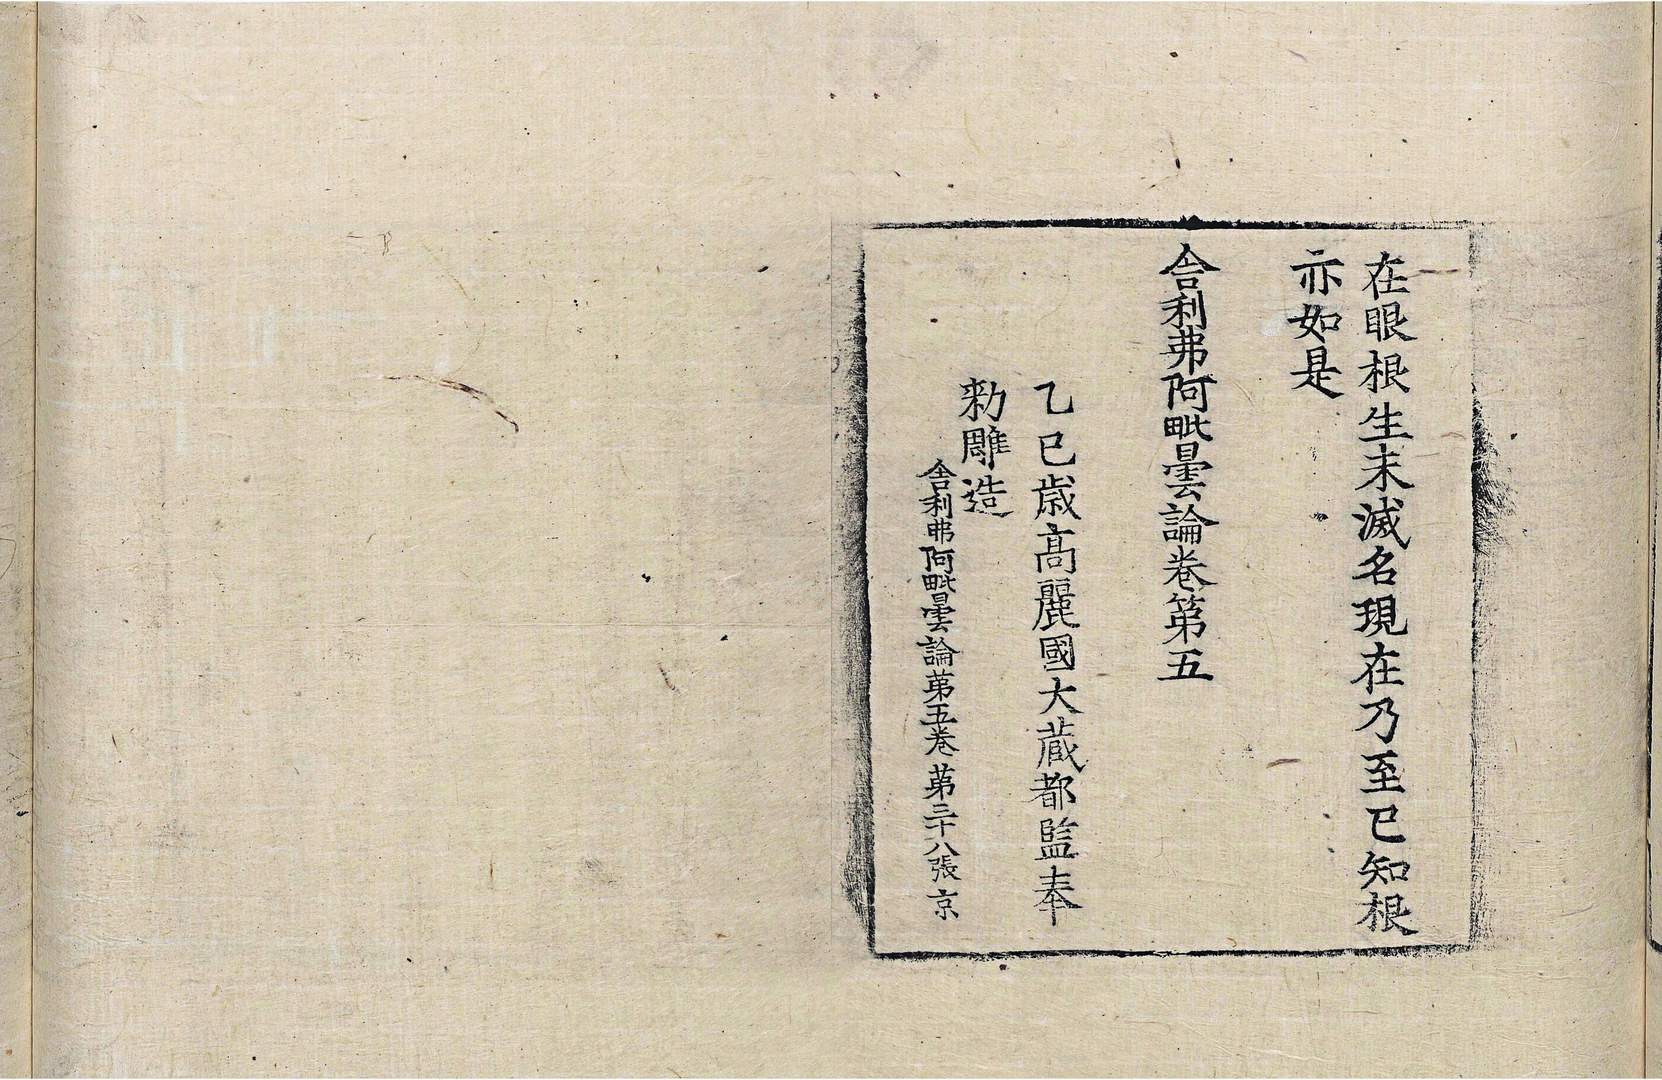 在眼根生未滅名現在乃至已知根
亦如是
舎利弗阿毗曇論卷第五
乙巳歳髙麗國大藏都監奉
勑雕造
舎利弗阿毗曇論第五卷 第三十八張 京